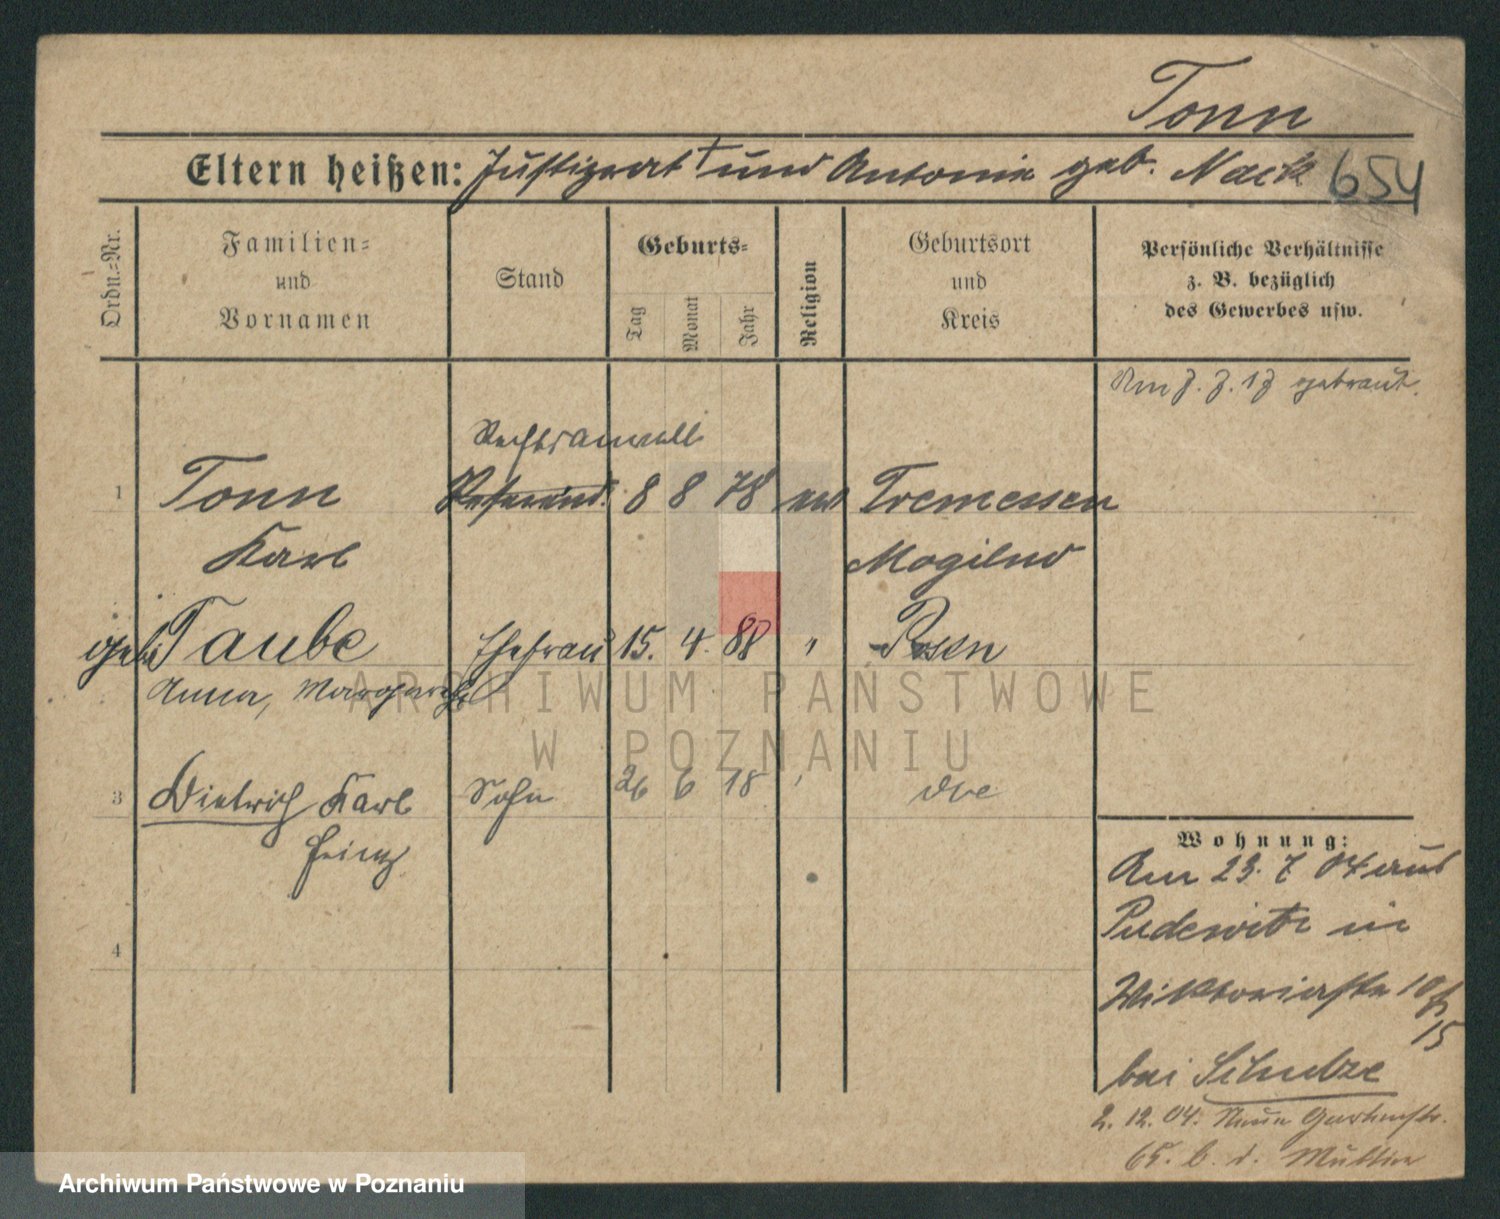 Tonn
Eltern heißen: Justizrat † und Antonie geb. Nack 654
Ordn.=Nr.
Familien=
und
Vornamen
Stand
Geburts=
Tag
Monat
Jahr
Religion
Geburtsort
und
Kreis
Persönliche Verhältnisse
z. B. bezüglich
des Gewerbes usw.
Am 7. 7. 17 getraut.
Rechtsanwalt
1 Tonn Referend. 8 8 78 ev. Tremessen
Karl Mogilno
geb. Taube Ehefrau 15. 4. 88 " Posen
Anna, Margarethe
3 Dietrich Karl Sohn 26 6 18 " dto
Heinz
4
Wohnung:
Am 23. 7 04 aus
Pudewitz in
Wiktoriastr 10
15
bei Schulze
2. 12. 04. Neue Gartenstr.
65. b. d. Mutter
ARCHIWUM PAŃSTWOWE
W POZNANIU
Archiwum Państwowe w Poznaniu